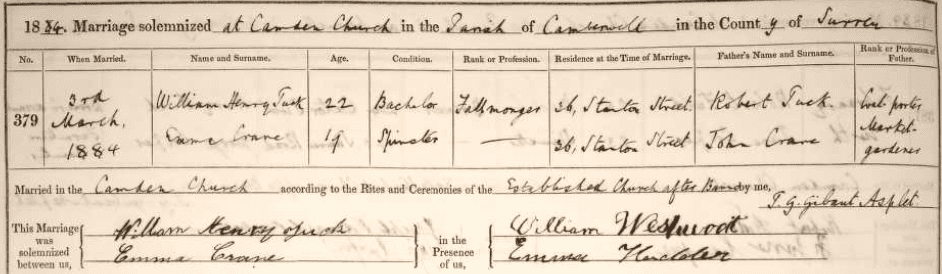 1884. Marriage solemnized at Camden Church in the Parish of Camberwell in the County of Surrey
No. When Married. Name and Surname. Age. Condition. Rank or Profession. Residence at the Time of Marriage. Father's Name and Surname. Rank or Profession of Father.
379 3rd March, 1884 William Henry Tuck 22 Bachelor 26, Stanton Street Robert Tuck Coal porter
Emma Crane 19 Spinster — 26, Stanton Street John Crane Market-gardener
Married in the Camden Church according to the Rites and Ceremonies of the Established Church after Banns by me,
This Marriage was solemnized between us, William Henry Tuck in the Presence of us, William
Emma Crane Emma